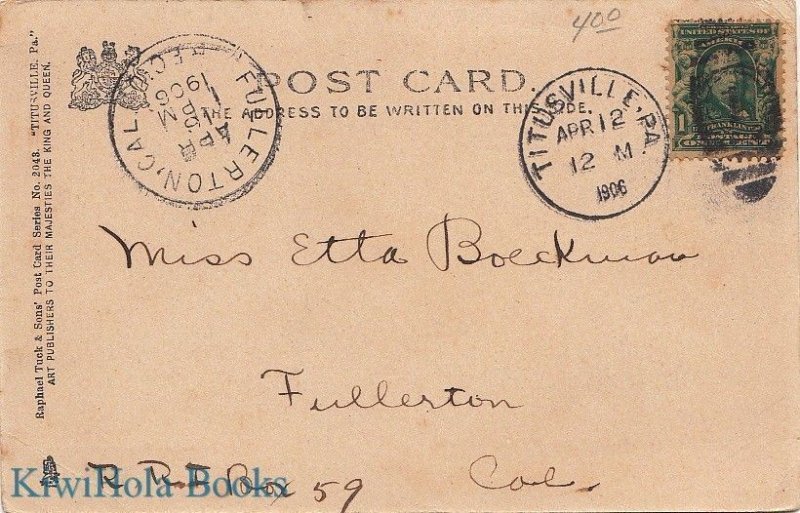 400
UNITED STATES OF
AMERICA
1
FRANKLIN
POSTAGE
ONE CENT
POST CARD.
THE ADDRESS TO BE WRITTEN ON THIS SIDE.
FULLERTON, CAL.
REC'D.
APR
1906
TITUSVILLE, PA.
APR 12
12 M
1906
Raphael Tuck & Sons' Post Card Series No. 2043. "TITUSVILLE, Pa."
ART PUBLISHERS TO THEIR MAJESTIES THE KING AND QUEEN.
Miss Etta Boeckman
Fullerton
R R 1 Box 59 Cal.
KiwiHola Books